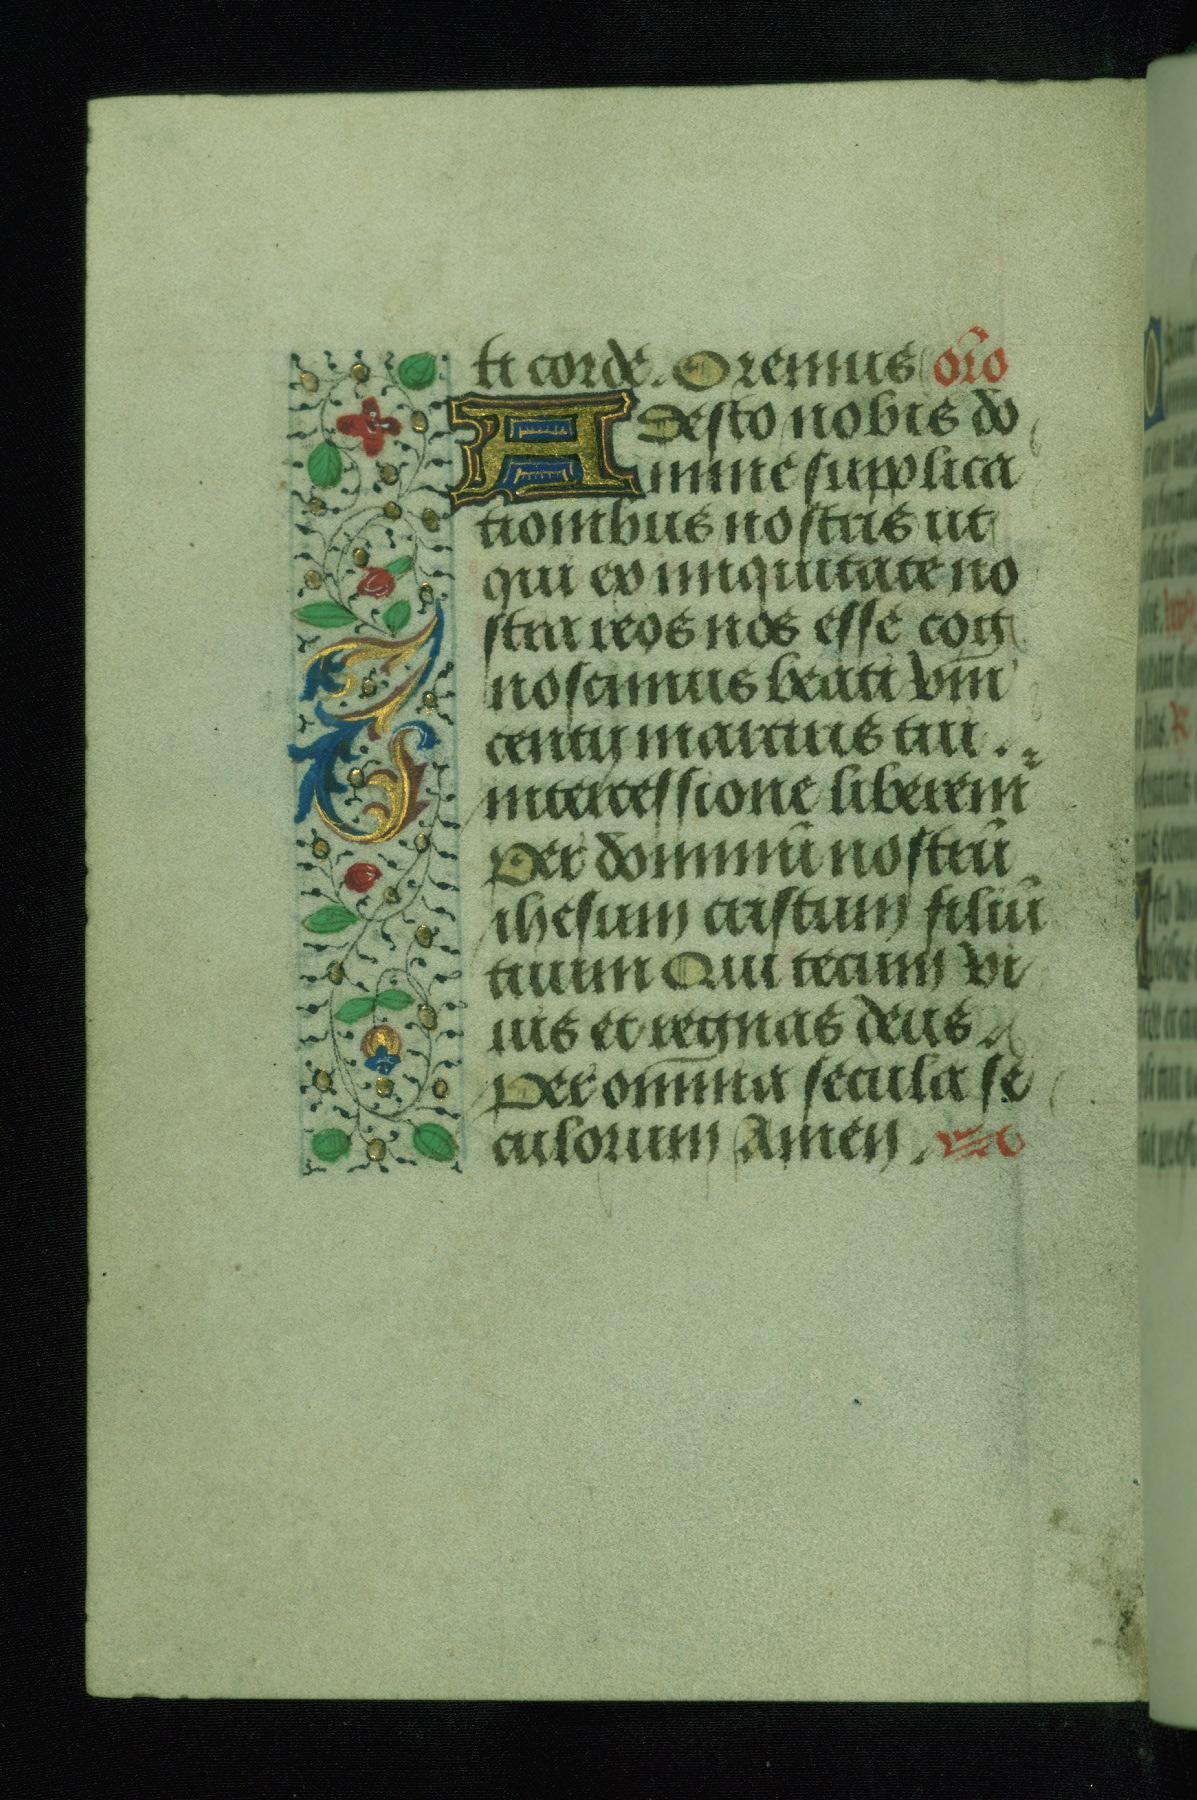 ti corde. Oremus or̃o
Adesto nobis do
mine supplica
tionibus nostris ut
qui ex iniquitate no
stra reos nos esse cog
noscimus beati vin
centij martiris tui .
intercessione liberem̃
Per dominũ nostrũ
ihesum cristum filiũ
tuum Qui tecum vi
uis et regnas deus
Per omnia secula se
culorum Amen.